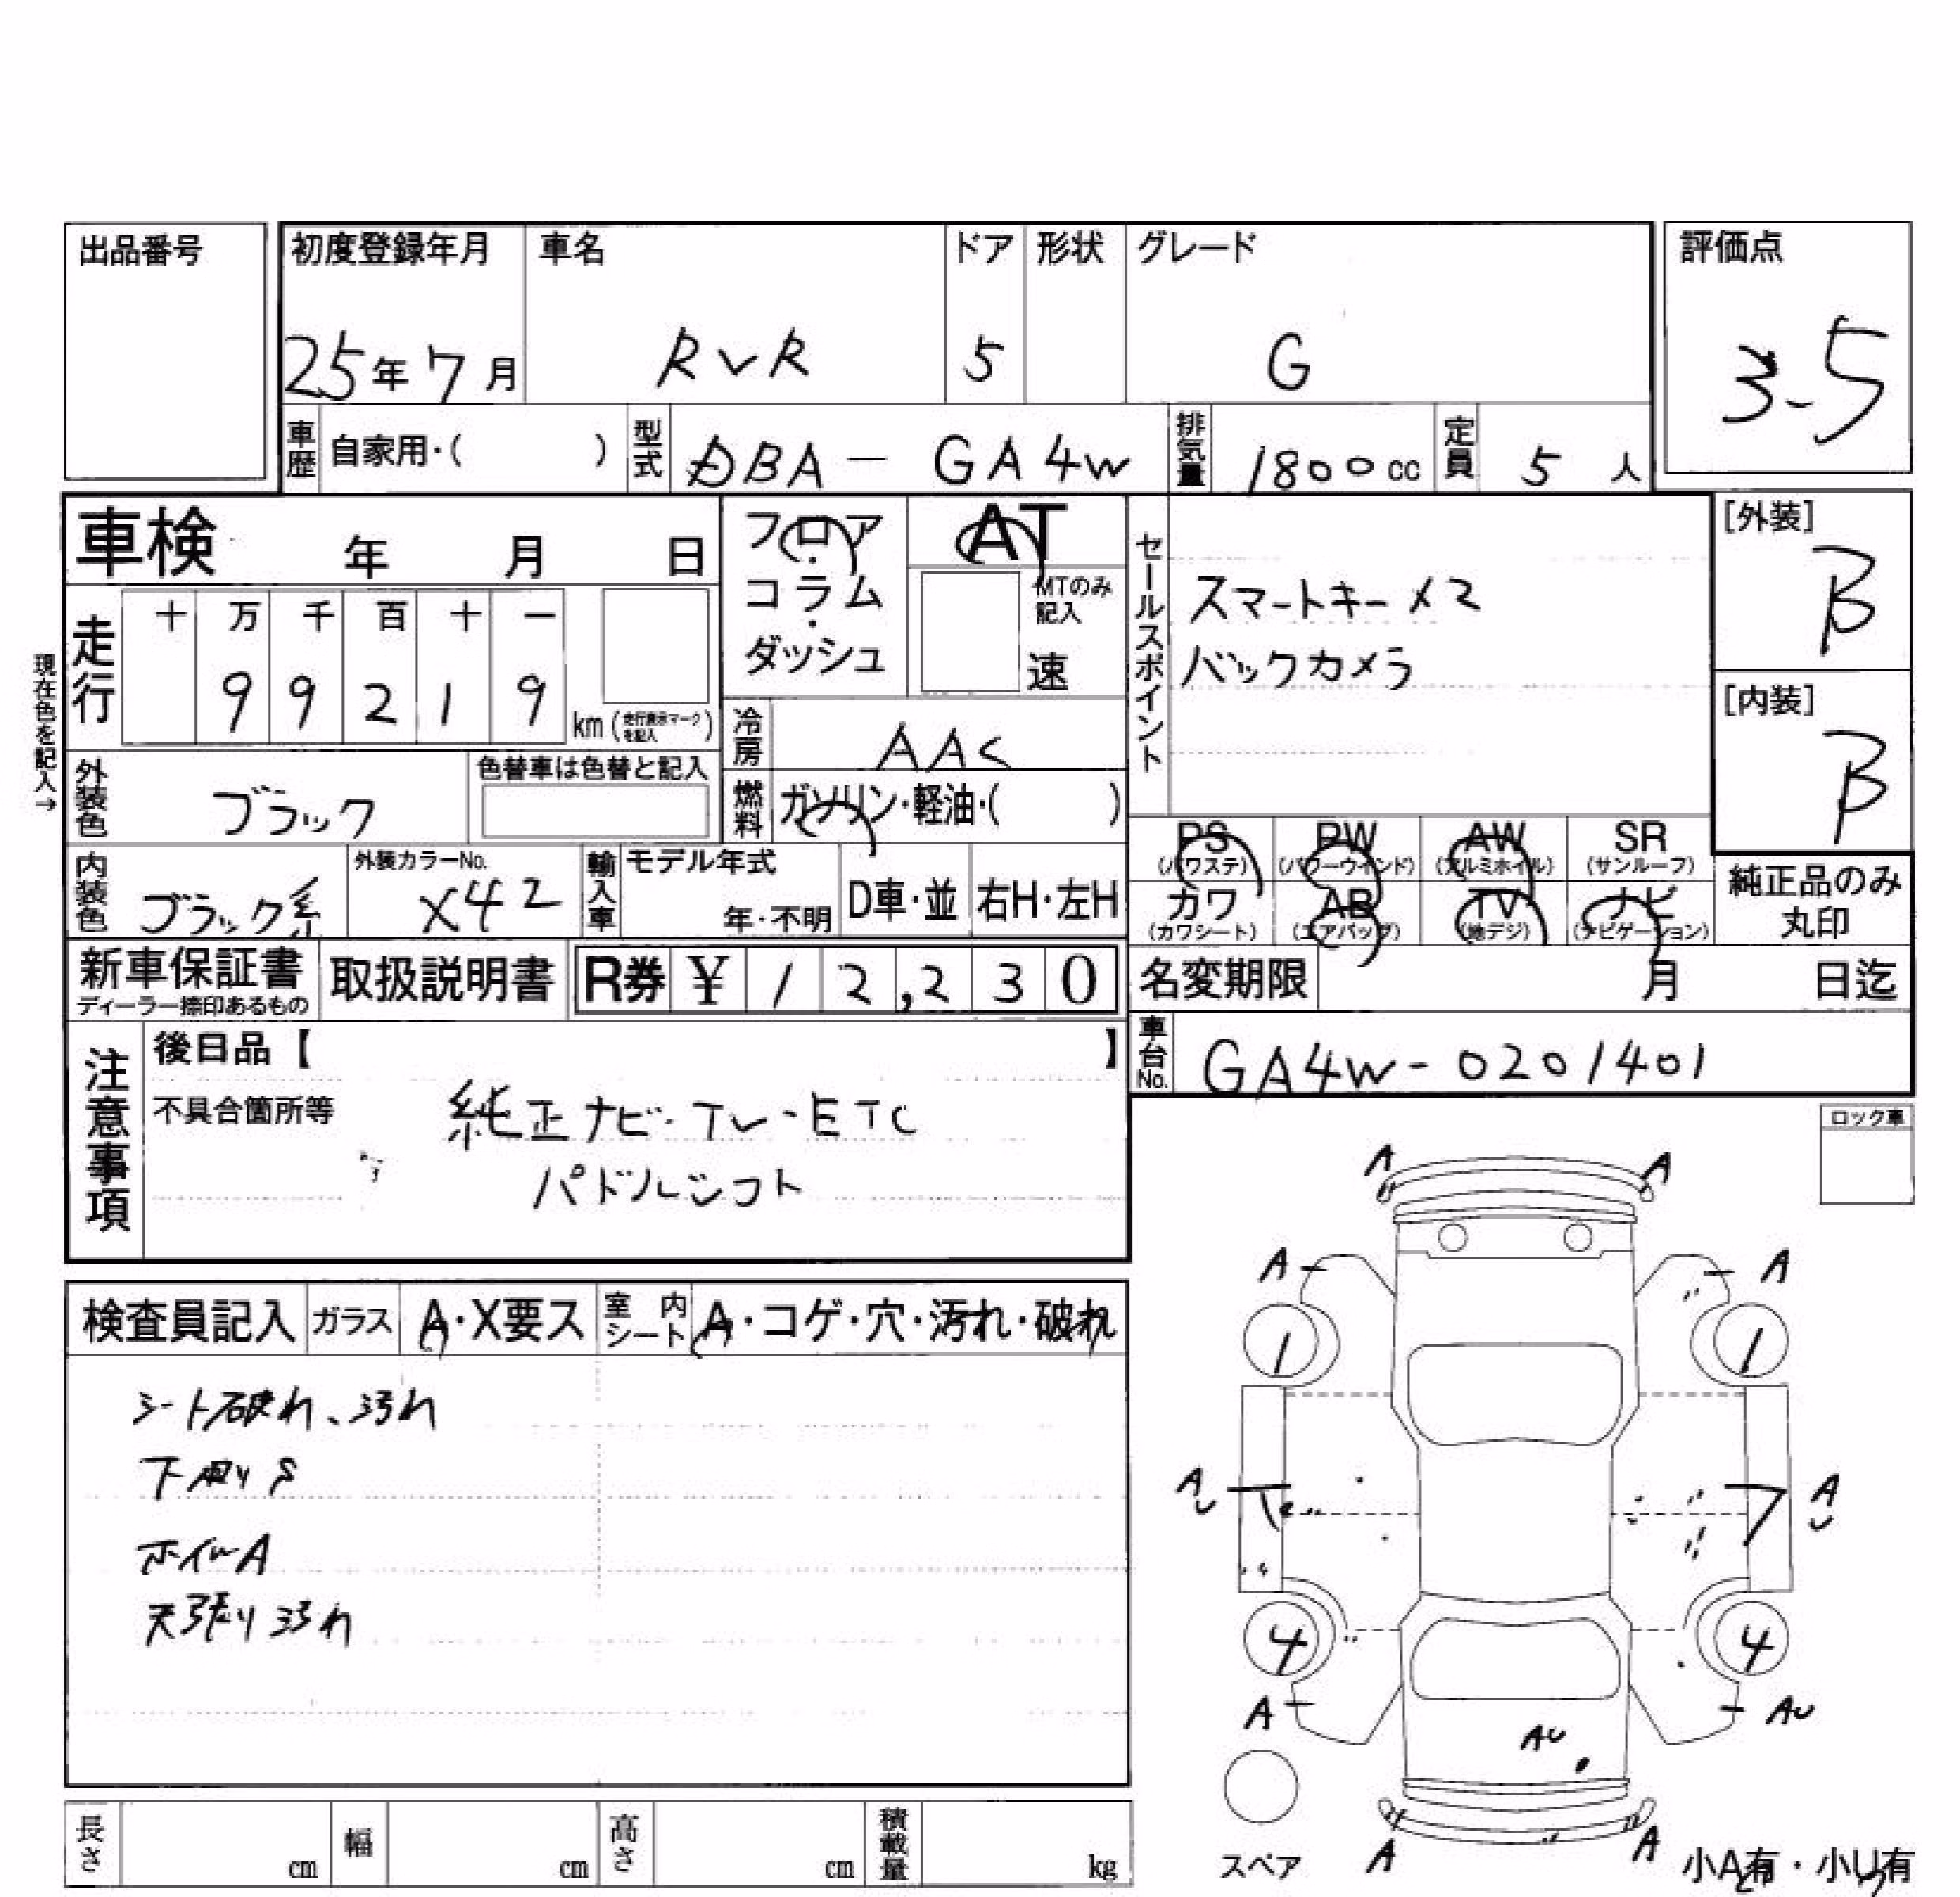 出品番号
初度登録年月 車名 ドア 形状 グレード 評価点
25年7月 RVR 5 G 3.5
車歴 自家用・( ) 型式 DBA-GA4W 排気量 1800cc 定員 5人
車検 年 月 日
フロア・コラム・ダッシュ
AT
MTのみ記入
速
セールスポイント
スマートキー×2
バックカメラ
[外装]
B
[内装]
B
現在色を記入→
走行 十 万 千 百 十 一
9 9 2 1 9
km (走行表示マークを記入)
冷房 AAC
燃料 ガソリン・軽油・( )
外装色 ブラック 色替車は色替と記入
内装色 ブラック系 外装カラーNo. X42
輸入車 モデル年式 年・不明 D車・並 右H・左H
PS (パワステ) PW (パワーウインド) AW (アルミホイル) SR (サンルーフ)
カワ (カワシート) AB (エアバッグ) TV (地デジ) ナビ (ナビゲーション)
純正品のみ丸印
新車保証書 ディーラー捺印あるもの 取扱説明書 R券 ¥12,230
名変期限 月 日迄
車台No. GA4W-0201401
注意事項
後日品【 】
不具合箇所等
純正ナビ・TV・ETC
パドルシフト
ロック車
検査員記入 ガラス A・X要ス 室内シート A・コゲ・穴・汚れ・破れ
シート破れ、汚れ
下廻りS
ホイルA
天張り汚れ
A A
A A
1 1
AU AU
4 4
A AU
AU
A A
スペア
小A有・小U有
長さ cm 幅 cm 高さ cm 積載量 kg